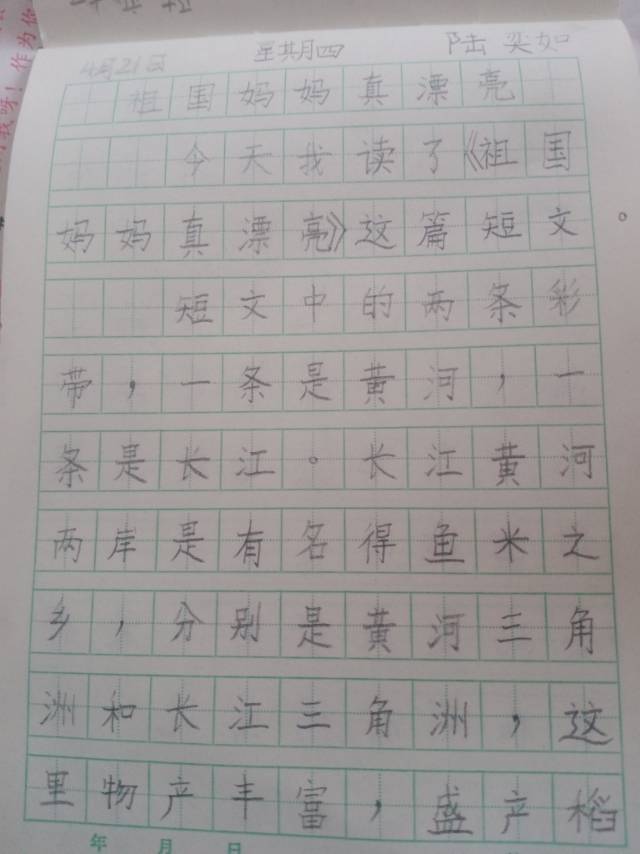 4月21日 星期四 陆奕如
祖国妈妈真漂亮
今天我读了《祖国
妈妈真漂亮》这篇短文。
短文中的两条彩
带，一条是黄河，一
条是长江。长江黄河
两岸是有名得鱼米之
乡，分别是黄河三角
洲和长江三角洲，这
里物产丰富，盛产稻
年 月 日
作为你
我呀！